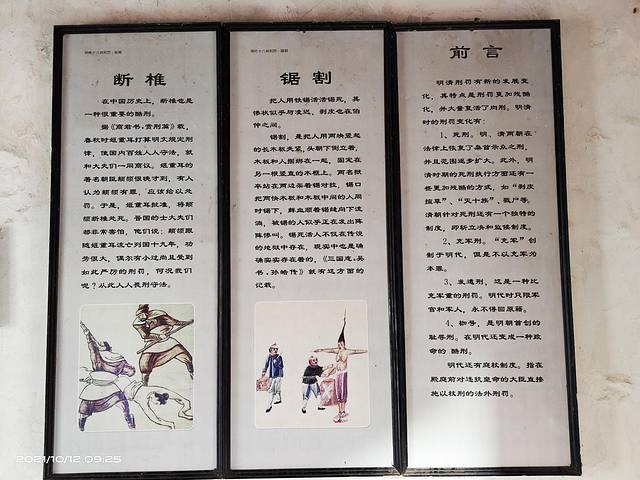 断椎
在中国历史上，断椎也是
一种很重要的酷刑。
据《商君书·赏刑篇》载，
春秋时姬重耳打算明文规定刑
律，使国内百姓人人守法，就
和大夫们一同商议。姬重耳的
著名朝臣颠颉很晚才到，有人
认为颠颉有罪，应该给以处
罚。于是，姬重耳批准，将颠
颉断椎处死。晋国的士大夫们
都非常害怕，他们说：颠颉跟
随姬重耳流亡列国十九年，功
劳很大，偶尔有小过尚且受到
如此严厉的刑罚，何况我们
呢？从此人人畏刑守法。
锯割
把人用铁锯活活锯死，其
惨状似乎与凌迟、剥皮也在伯
仲之间。
锯割，是把人用两块竖起
的长木板夹紧，头朝下倒立着，
木板和人捆绑在一起，固定在
另一根竖直的木桩上。两名狱
卒站在两边架着锯对拉，锯口
把两快木板和木板中间的人同
时锯下，鲜血顺着锯缝向下流
淌，被锯的人似乎正在发出阵
阵惨叫。锯死活人不仅在传说
的地狱中存在，现实中也是确
确实实存在着的，《三国志·吴
书·孙皓传》就有这方面的
记载。
前言
明清刑罚有新的发展变
化，其特点是刑罚更加残酷
化，并大量复活了肉刑。明清
时的刑罚变化有：
1、死刑。明、清两朝在
法律上恢复了枭首示众之刑，
并且范围逐步扩大。此外，明
清时期的死刑执行方面还有一
些更加残酷的方式，如“剥皮
揎草”、“灭十族”、戮尸等。
清朝针对死刑还有一个独特的
制度，即斩立决和监候制度。
2、充军刑。“充军”创
制于明代，但是不以充军为
本罪。
3、发遣刑，这是一种比
充军重的刑罚。明代时只限军
官和军人，永不得回原籍。
4、枷号，是明朝首创的
耻辱刑。在明代还变成一种致
命的 酷刑。
明代还有庭杖制度。指在
殿庭前对违抗皇命的大臣直接
施以杖刑的法外刑罚。
2021/10/12 09:25